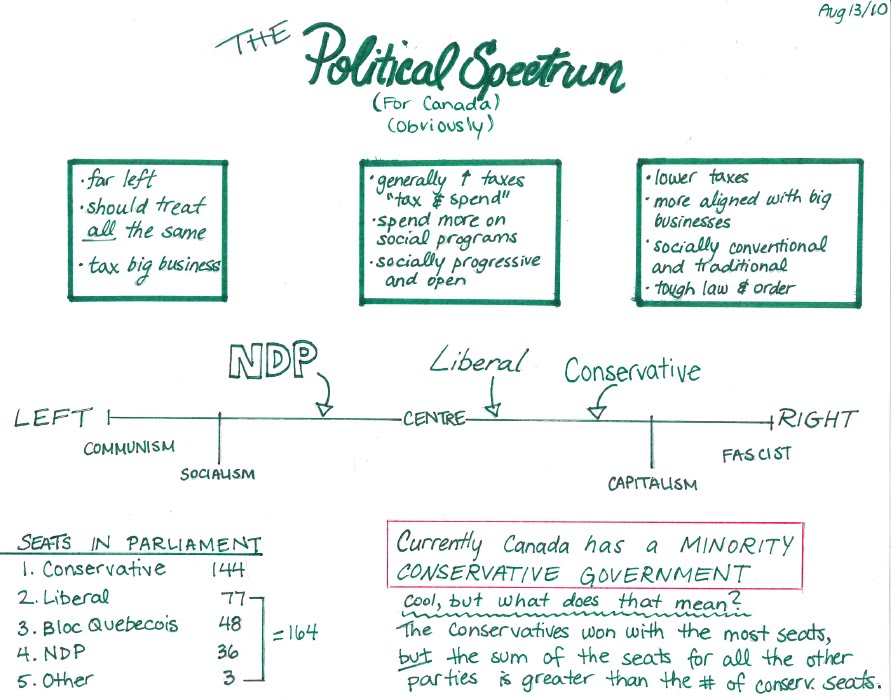 Aug 13/10
THE
Political Spectrum
(For Canada)
(Obviously)
· far left
· should treat
all the same
· tax big business
· generally ↑ taxes
"tax & spend"
· spend more on
social programs
· socially progressive
and open
· lower taxes
· more aligned with big
businesses
· socially conventional
and traditional
· tough law & order
NDP
Liberal
Conservative
LEFT
CENTRE
RIGHT
COMMUNISM
SOCIALISM
CAPITALISM
FASCIST
SEATS IN PARLIAMENT
1. Conservative 144
2. Liberal 77
3. Bloc Quebecois 48
4. NDP 36
5. Other 3
= 164
Currently Canada has a MINORITY
CONSERVATIVE GOVERNMENT
Cool, but what does that mean?
The Conservatives won with the most seats,
but the sum of the seats for all the other
parties is greater than the # of conserv. seats.